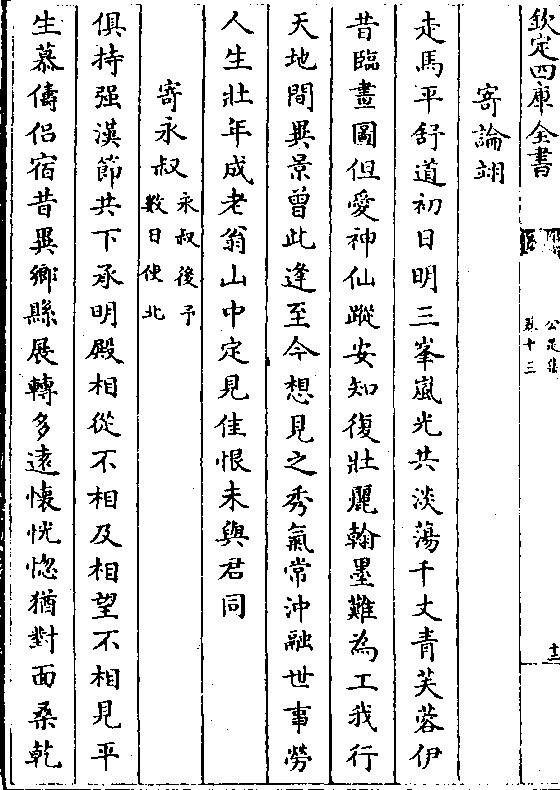 欽定四庫全書
公是集
卷十三
十三
寄論翊
走馬平舒道初日明三峯嵐光共淡蕩千丈青芙蓉伊
昔臨畫圖但愛神仙蹤安知復壯麗翰墨難為工我行
天地間異景曾此逢至今想見之秀氣常沖融世事勞
人生壯年成老翁山中定見佳恨未與君同
寄永叔永叔後予數日使北
俱持强漢節共下承明殿相從不相及相望不相見平
生慕儔侶宿昔異鄉縣展轉多遠懷恍惚猶對面桑乾